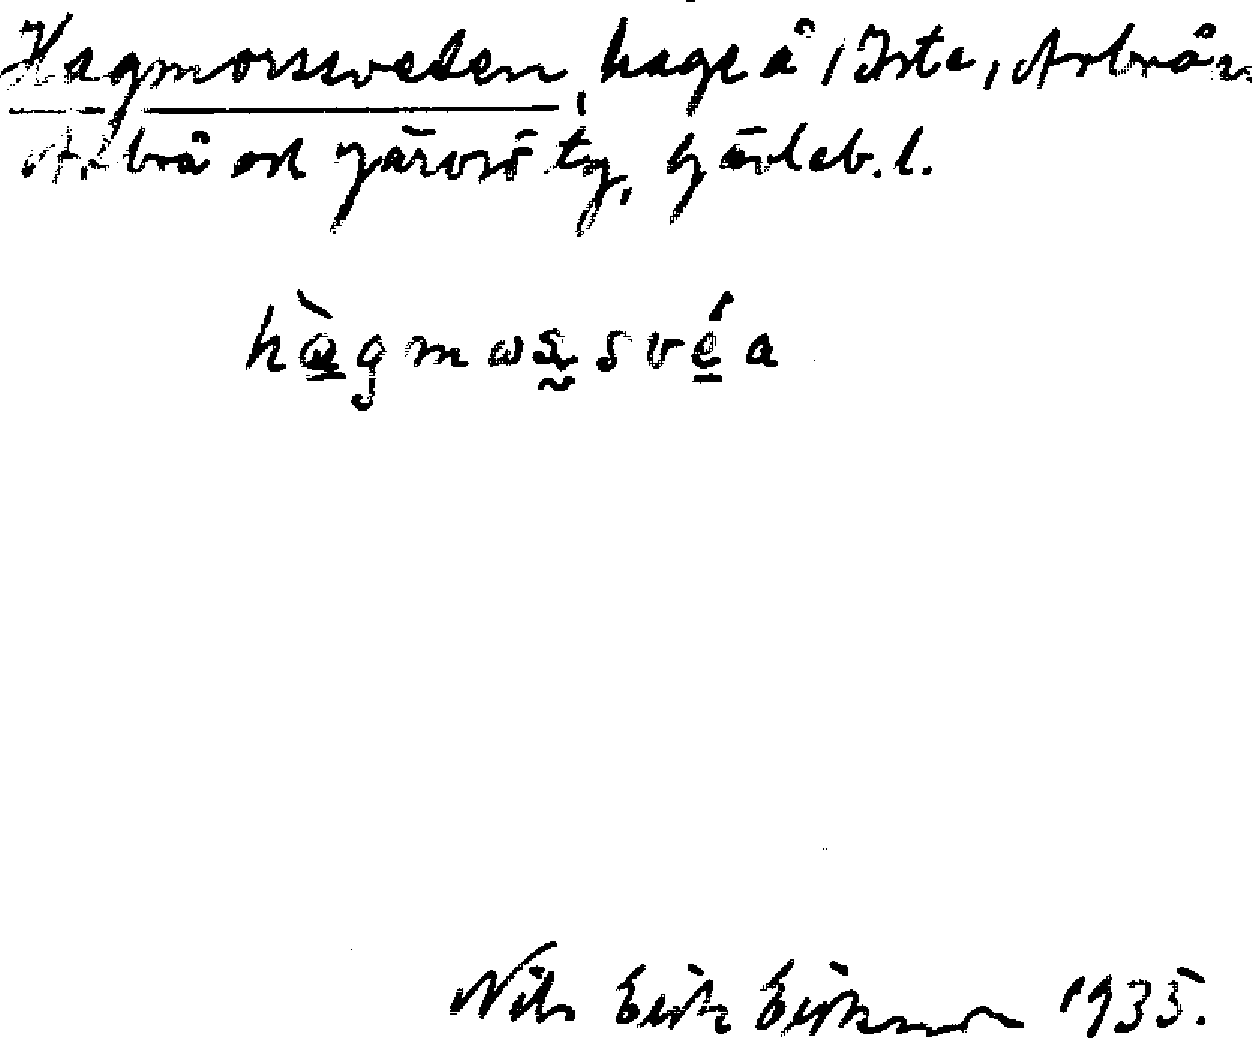 Hagmorssveden, hage å /Iste, Arbrå s.
Arbrå och Järvsö tg, Gävleb. l.
hàgmωṣsvéa
Nils Erik Eriksson 1935.